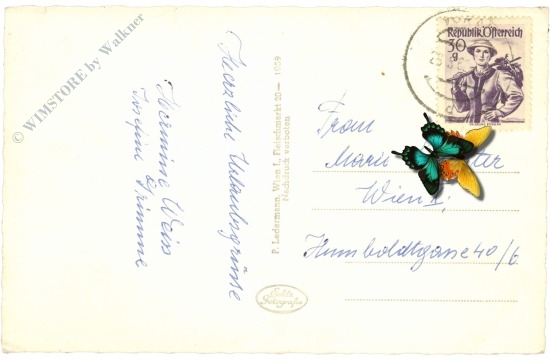 © WIMSTORE by Walkner
Herzliche Urlaubsgrüße
Hermine Weiss
Josefine Grimme
P. Ledermann, Wien I, Fleischmarkt 20 — 1059
Nachdruck verboten
Echte
Fotografie
Republik Österreich
30
g
Frau
Marie
Wien II.
Humboldtgasse 40/6